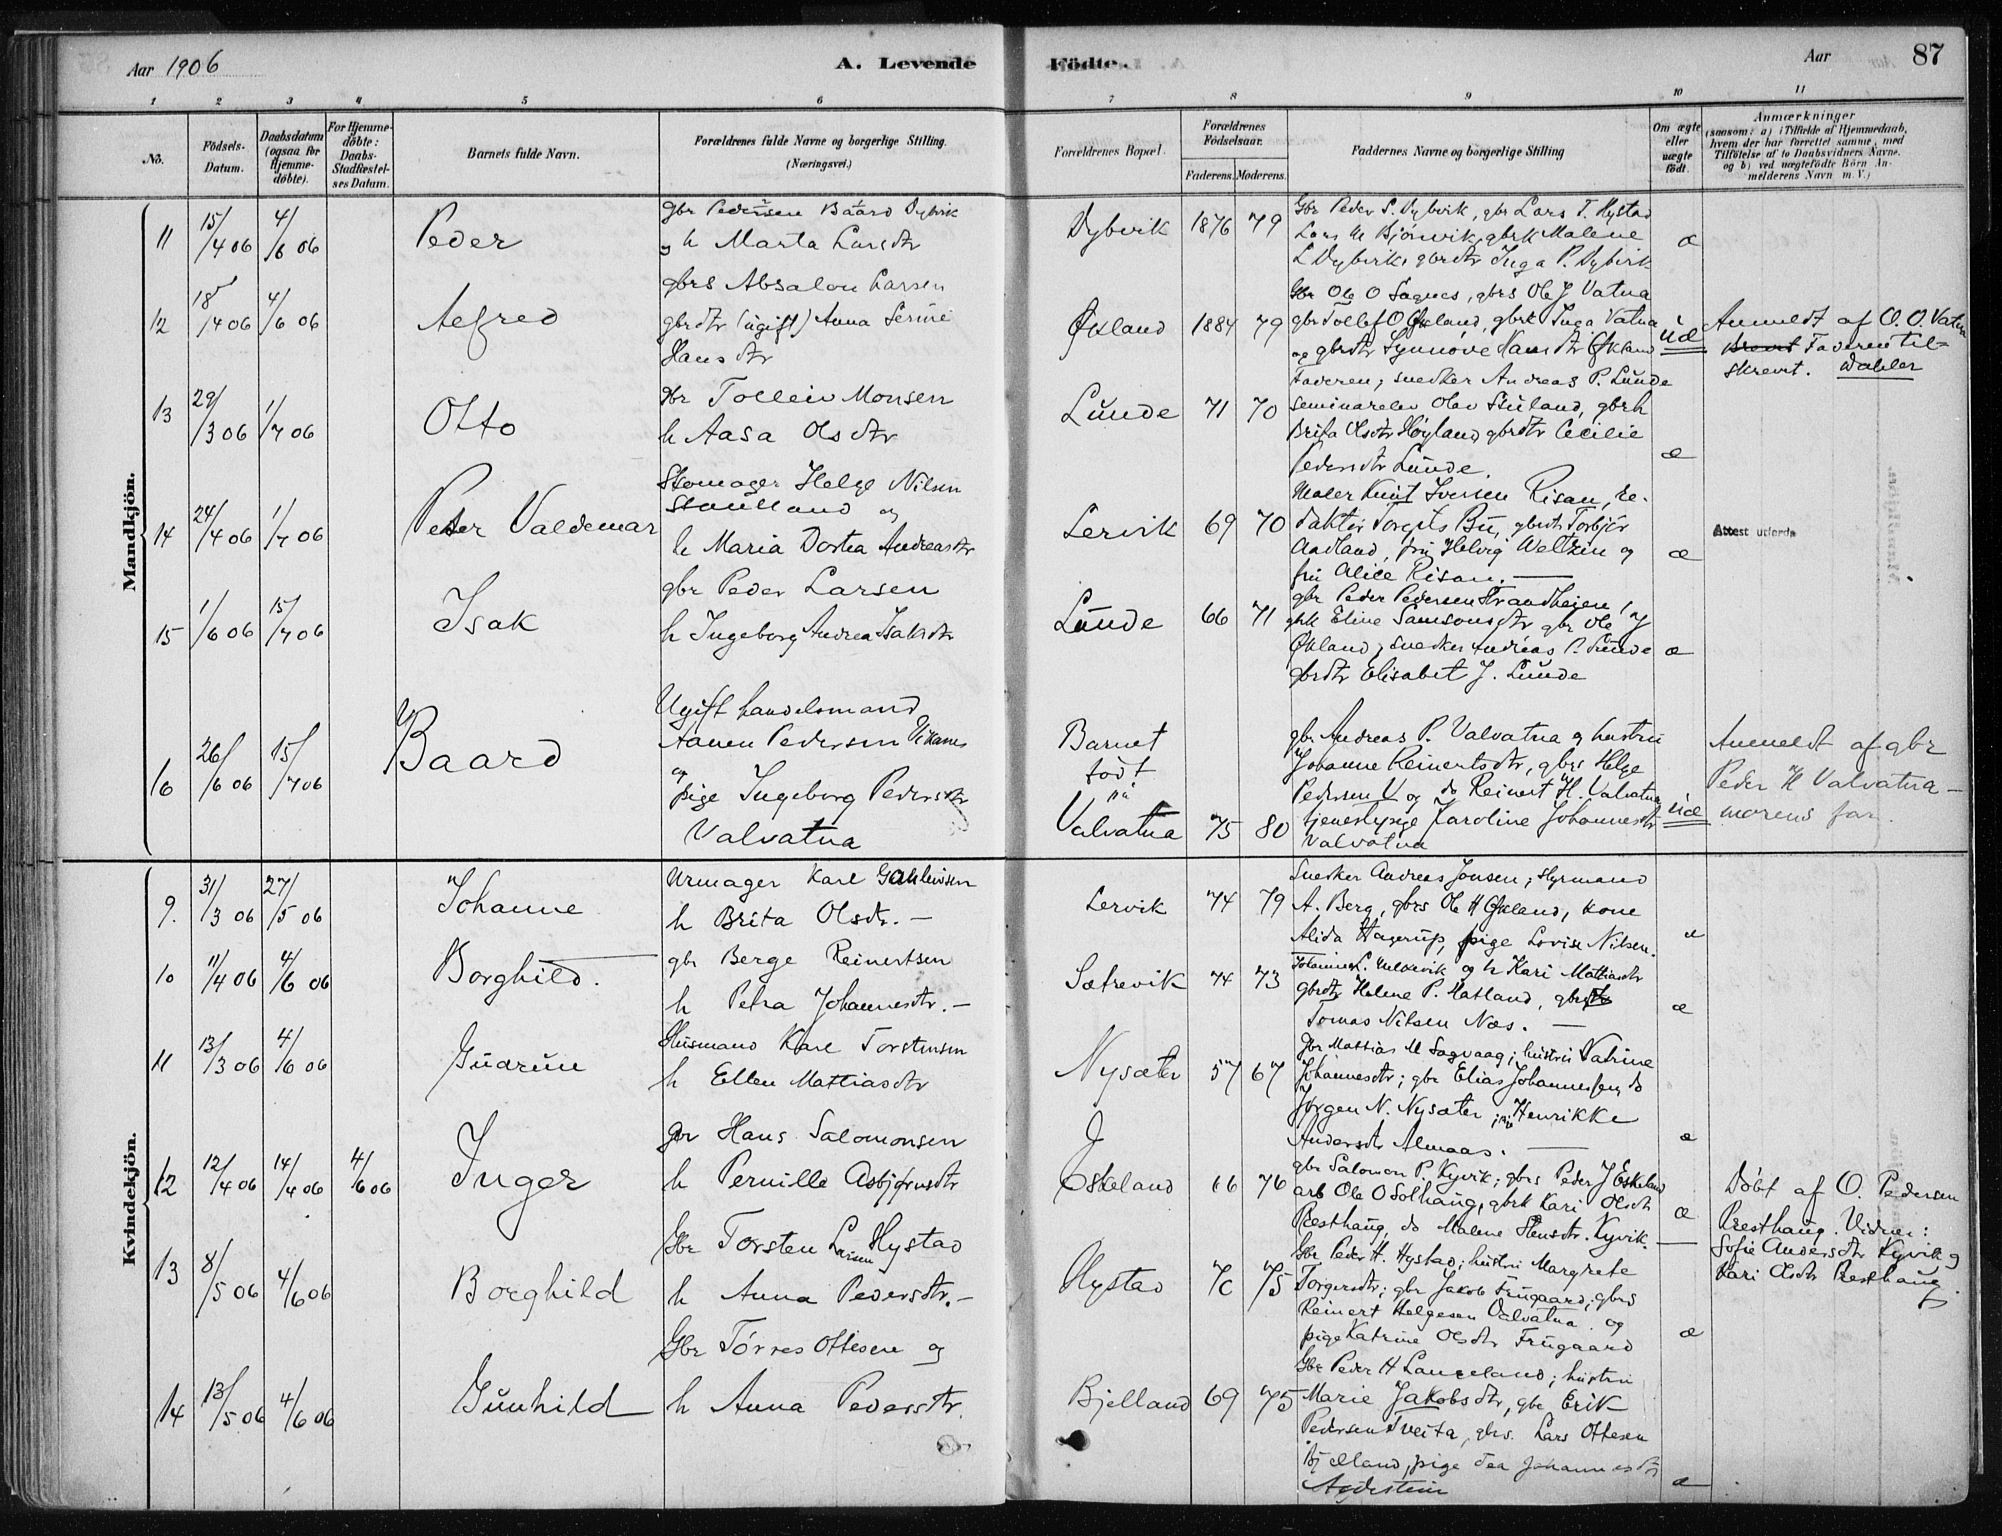 Aar 1906
A. Levende
Födte.
Aar
87
1 2 3 4 5 6 7 8 9 10 11
No.
Födsels-Datum.
Daabsdatum (ogsaa for Hjemme-döbte).
For Hjemme-döbte: Daabs-Stadfæstel-ses Datum.
Barnets fulde Navn.
Forældrenes fulde Navne og borgerlige Stilling.
(Næringsvei.)
Forældrenes Bopæl.
Forældrenes Födselsaar.
Faderens. Moderens.
Faddernes Navne og borgerlige Stilling
Om ægte eller uægte födt.
Anmærkninger
(saasom: a) i Tilfælde af Hjemmedaab,
hvem der har forrettet samme, med
Tilföielse af to Daabsvidners Navne.
og b) ved uægtefödte Börn An-
melderens Navn m. V.)
Mandkjön.
11 15/4 06 4/6 06 Peder
gbr Pedersen Baard Dybvik
og h Marta Larsdtr
Dybvik 1876 79
Gbr Peder S. Dybvik, gbr Lars T. Hystad
Lars M Bjørnvik, gbrk Malene
L Dybvik, gbrdtr Inga P. Dybvik
æ
12 18/4 06 4/6 06 Alfred
gbrs Absalon Larsen
gbrdtr (ugift) Anna Serine
Hansdtr
Økland 1884 79
Gbr Ole O Sagnes, gbrs Ole J Vatna
gbr Tollef O Økland, gbrk Inga Vatna
og gbrdtr Synnøve Hansdtr Økland
uæ
Anmeldt af O. O. Vatna
Brevet Faderen til-
skrevet. Dahler
13 29/3 06 1/7 06 Otto
gbr Tolleiv Monsen
h Aasa Olsdtr
Lunde 71 70
Faderen, snedker Andreas P. Lunde
seminarelev Olav Stuland, gbrk
Brita Olsdtr Høyland gbrdtr Cecilie
Pedersdtr Lunde.
æ
14 24/4 06 1/7 06 Peder Valdemar
Skomager Helge Nilsen
Stuelland og
h Maria Dortea Andreasdtr
Lervik 69 70
Maler Knut Iversen Risan, re-
daktør Torgils Bu, gbrdtr Torbjør
Aadland, fru Helvig Weltzin og
fru Alice Risan. —
æ
Attest utferda
15 1/6 06 15/7 06 Isak
gbr Peder Larsen
h Ingeborg Andrea Isaksdtr
Lunde 66 71
gbr Peder Pedersen Strandheien,
gbrk Eline Samsonsdtr gbr Ole J
Økland, snedker Andreas P. Lunde
gbrdtr Elisabet J. Lunde
æ
16 26/6 06 15/7 06 Baard
Ugift handelsmand
Aanen Pedersen Vikanes
og
pige Ingeborg Pedersdtr
Valvatna
Barnet
født
på
Valvatna 75 80
gbr Andreas P. Valvatna og hustru
Johanne Reinertsdtr, gbrs Helge
Pedersen V og do Reinert H. Valvatna
tjenestepige Karoline Johannesdtr
Valvatna
uæ
Anmeldt af gbr
Peder H Valvatna —
morens far.
Kvindekjön.
9. 31/3 06 27/5 06 Johanne
Urmager Karl Gahlnisen
h Brita Olsdtr. —
Lervik 74 79
Snedker Andreas Jonsen; Styrmand
A. Berg, gbrs Ole H Økland, kone
Alida Hagerup, pige Lovise Nilsen.
æ
10 11/4 06 4/6 06 Borghild.
gbr Berge Reinertsen
h Petra Johannesdtr. —
Sætrevik 74 73
Johannes L. og h Kari Mattiasdtr
gbrdtr Helene P. Matland, gbrs
Tomas Nilsen Næs. —
æ
11 13/3 06 4/6 06 Gudrun
Husmand Karl Torstensen
h Ellen Mattiasdtr
Nysæter 57 67
Gbr Mattias M Sagvaag; hustru Katrine
Johannesdtr; gbr Elias Johannessen, do
Jørgen N. Nysæter, pige Henrikke
Andersdtr Almaas. —
æ
12 12/4 06 14/4 06 4/6 06 Inger
Gbr Hans Salomonsen
h Pernille Asbjørnsdtr
Eskeland 66 76
gbr Salomon P. Kyvik; gbrs Peder J Eskeland
arb Ole O Solhaug, gbrk Kari Olsdtr
Presthaug, do Malene Hensdtr. Kyvik. —
æ
Døbt af O. Pedersen
Presthaug. Vidner:
Sofie Andersdtr Kyvik og
Kari Olsdtr Presthaug
13 8/5 06 4/6 06 Borghild
Gbr Torsten Larsen Hystad
h Anna Pedersdtr. —
Hystad 70 75
Gbr Peder H. Hystad; hustru Margrete
Torgersdtr; gbr Jakob Frugaard; gbrs
Reinert Helgesen Valvatna og
pige Katrine Olsdtr Frugaard
æ
14 13/5 06 4/6 06 Gunhild
Gbr Tørres Ottesen og
h Anna Pedersdtr.
Bjelland 69 75
Gbr Peder H Langeland; hustru
Marie Jakobsdtr, gbr Erik
Pedersen Tveita, gbrs. Lars Ottesen
Bjelland, pige Tea Johannesdtr
Agdestein
æ